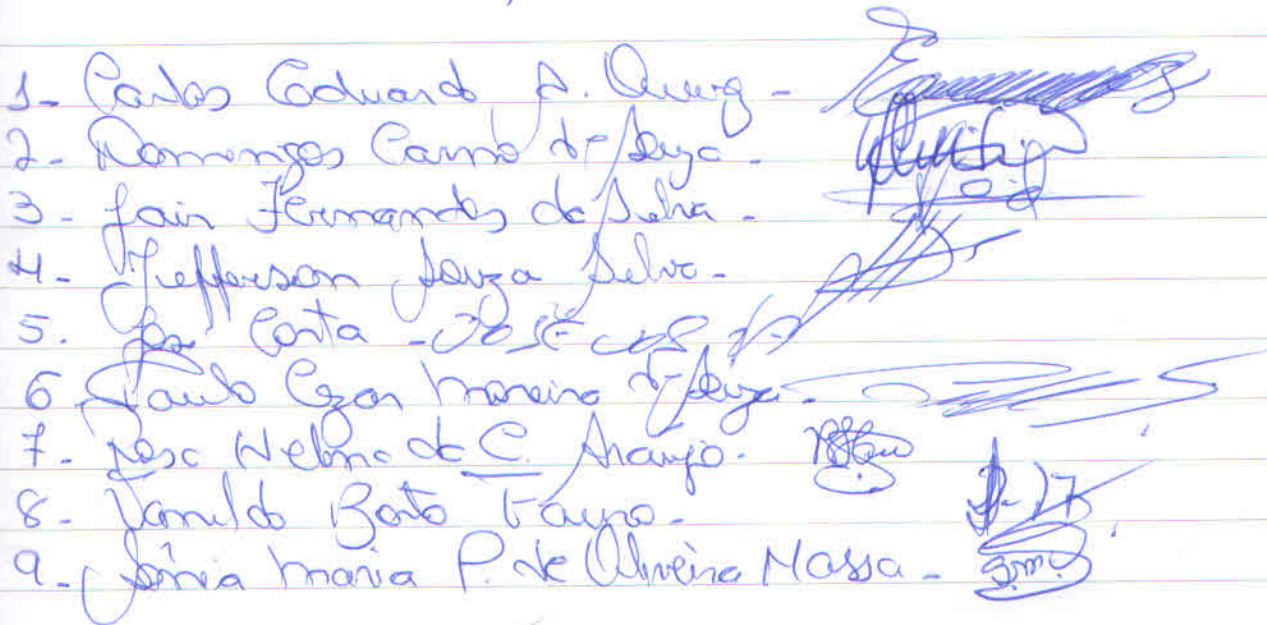 1- Carlos Eduardo A. Queiroz -
2- Domingos Carmo de Souza -
3- Jair Fernandes da Silva -
4- Jefferson Souza Silva -
5. José Costa - JOSÉ COSTA
6 Paulo Cezar Moreira de Souza -
7- Rosa Helena de C. Araujo -
8- Vanildo Bento
9- Sônia Maria P. de Oliveira Massa -